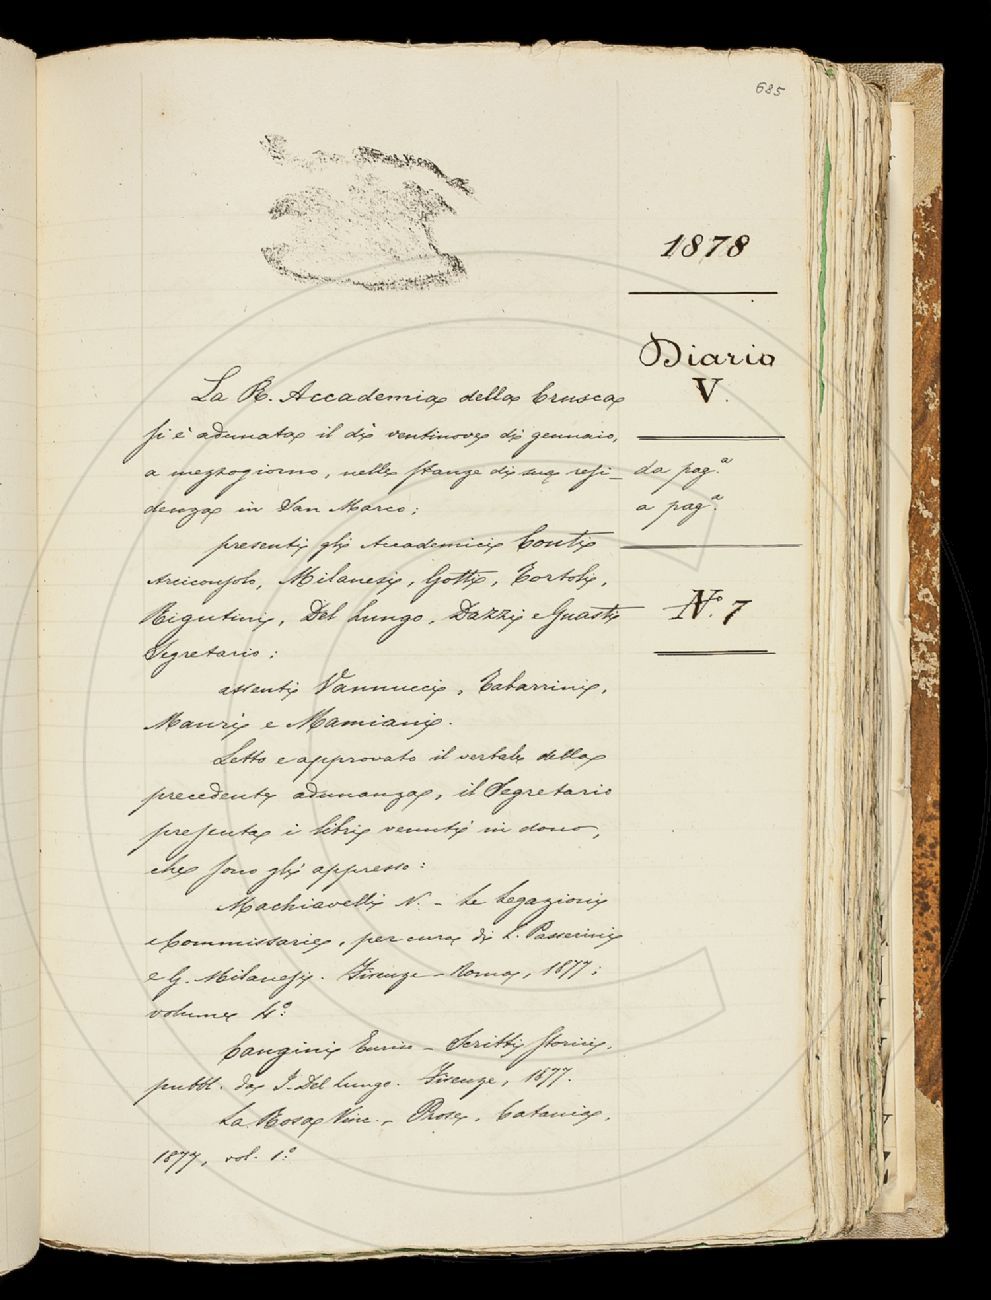 685
1878
Diario
V.
La R. Accademia della Crusca
si è adunata il dì ventinove di gennaio,
a mezzogiorno, nelle stanze di sua resi-
denza in San Marco;
da pag.ª
a pag.ª
presenti gli Accademici Conti
Arciconsolo, Milanesi, Gotti, Tortoli,
Rigutini, Del Lungo, Dazzi e Guasti
Segretario;
N.º 7
assenti Vannucci, Tabarrini,
Mauri e Mamiani.
Letto e approvato il verbale della
precedente adunanza, il Segretario
presenta i libri venuti in dono,
che sono gli appresso:
Machiavelli N. - Le Legazioni
e Commissarie, per cura di L. Passerini
e G. Milanesi. Firenze - Roma, 1877;
volume 4.º
Cangini Enrico - Scritti storici,
pubbl. da I. Del Lungo. Firenze, 1877.
La Rosa Vinc. - Prose. Catania,
1877, vol. 1.º